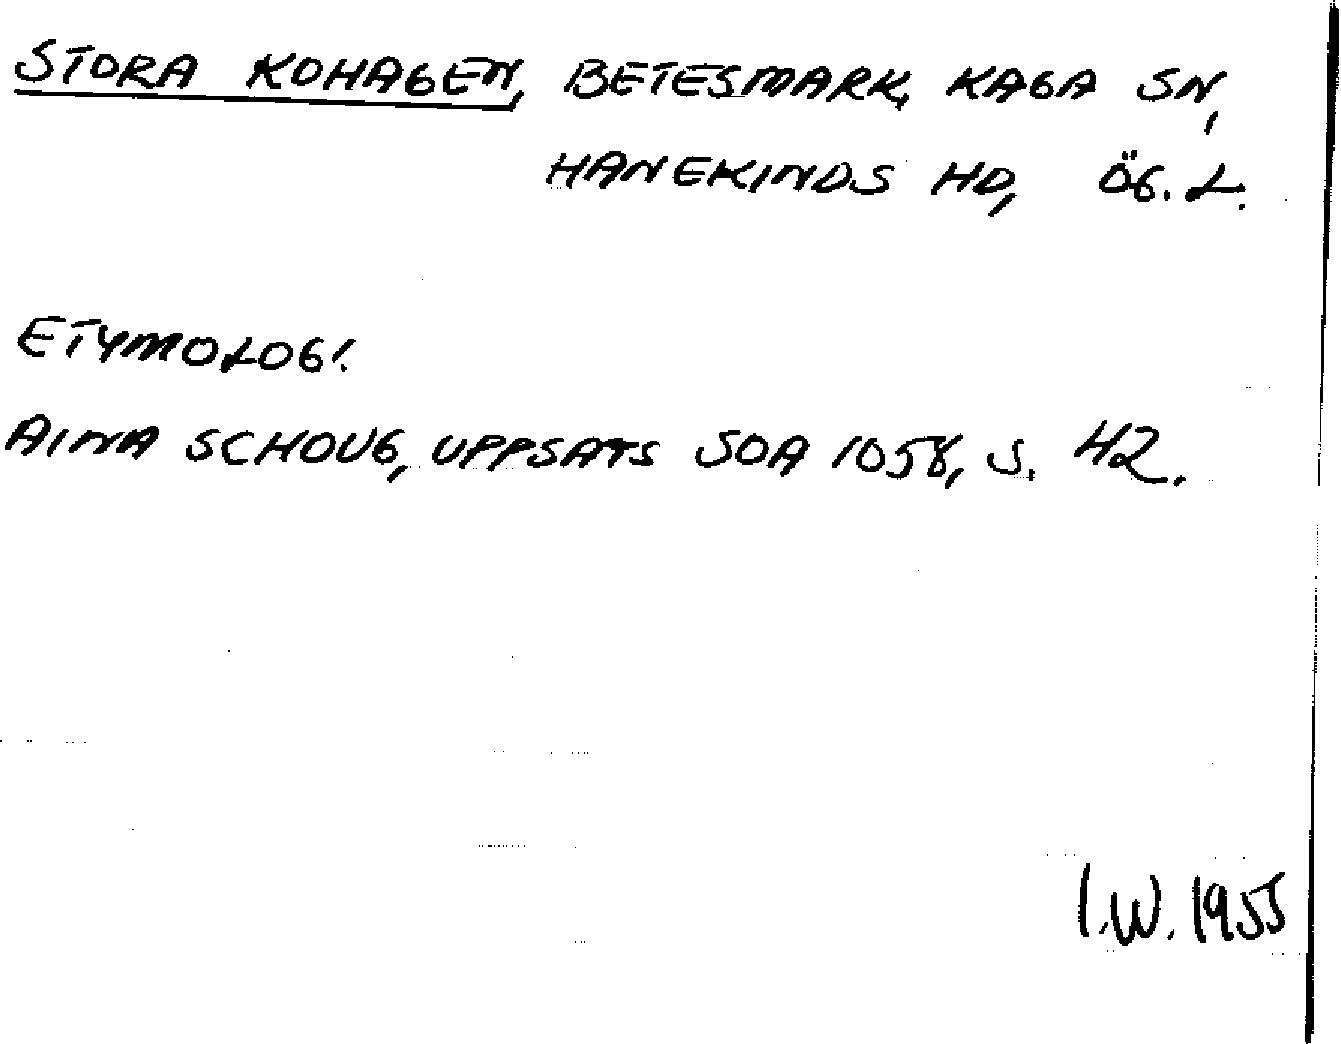 STORA KOHAGEN, BETESMARK, KAGA SN,
HANEKINDS HD, ÖG. L.
ETYMOLOGI.
AINA SCHOUG, UPPSATS SOA 1058, S. 42.
I.W. 1955